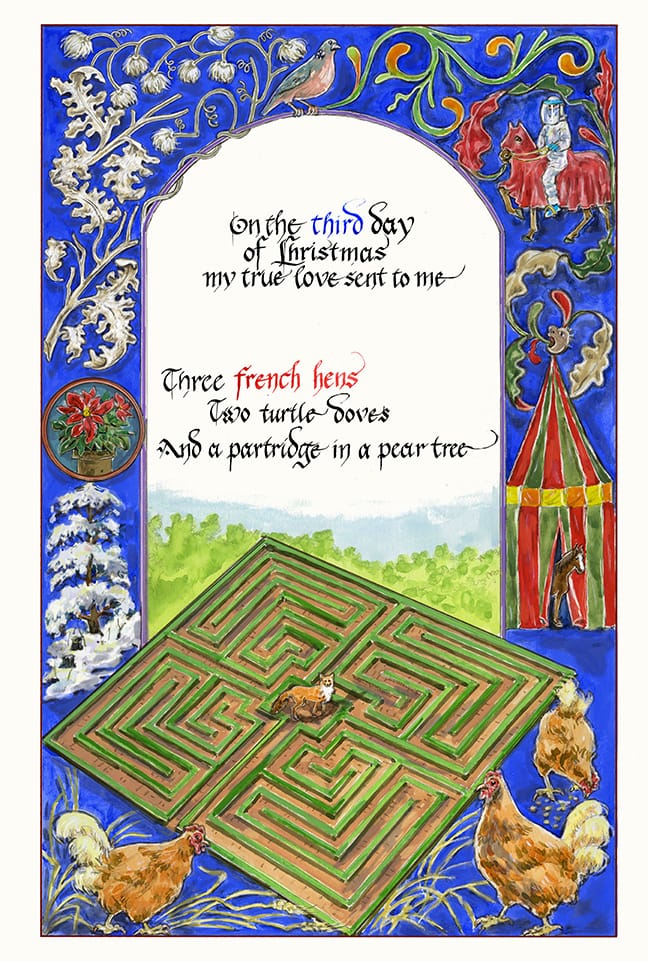 On the third day
of Christmas
my true love sent to me
Three french hens
Two turtle doves
And a partridge in a pear tree